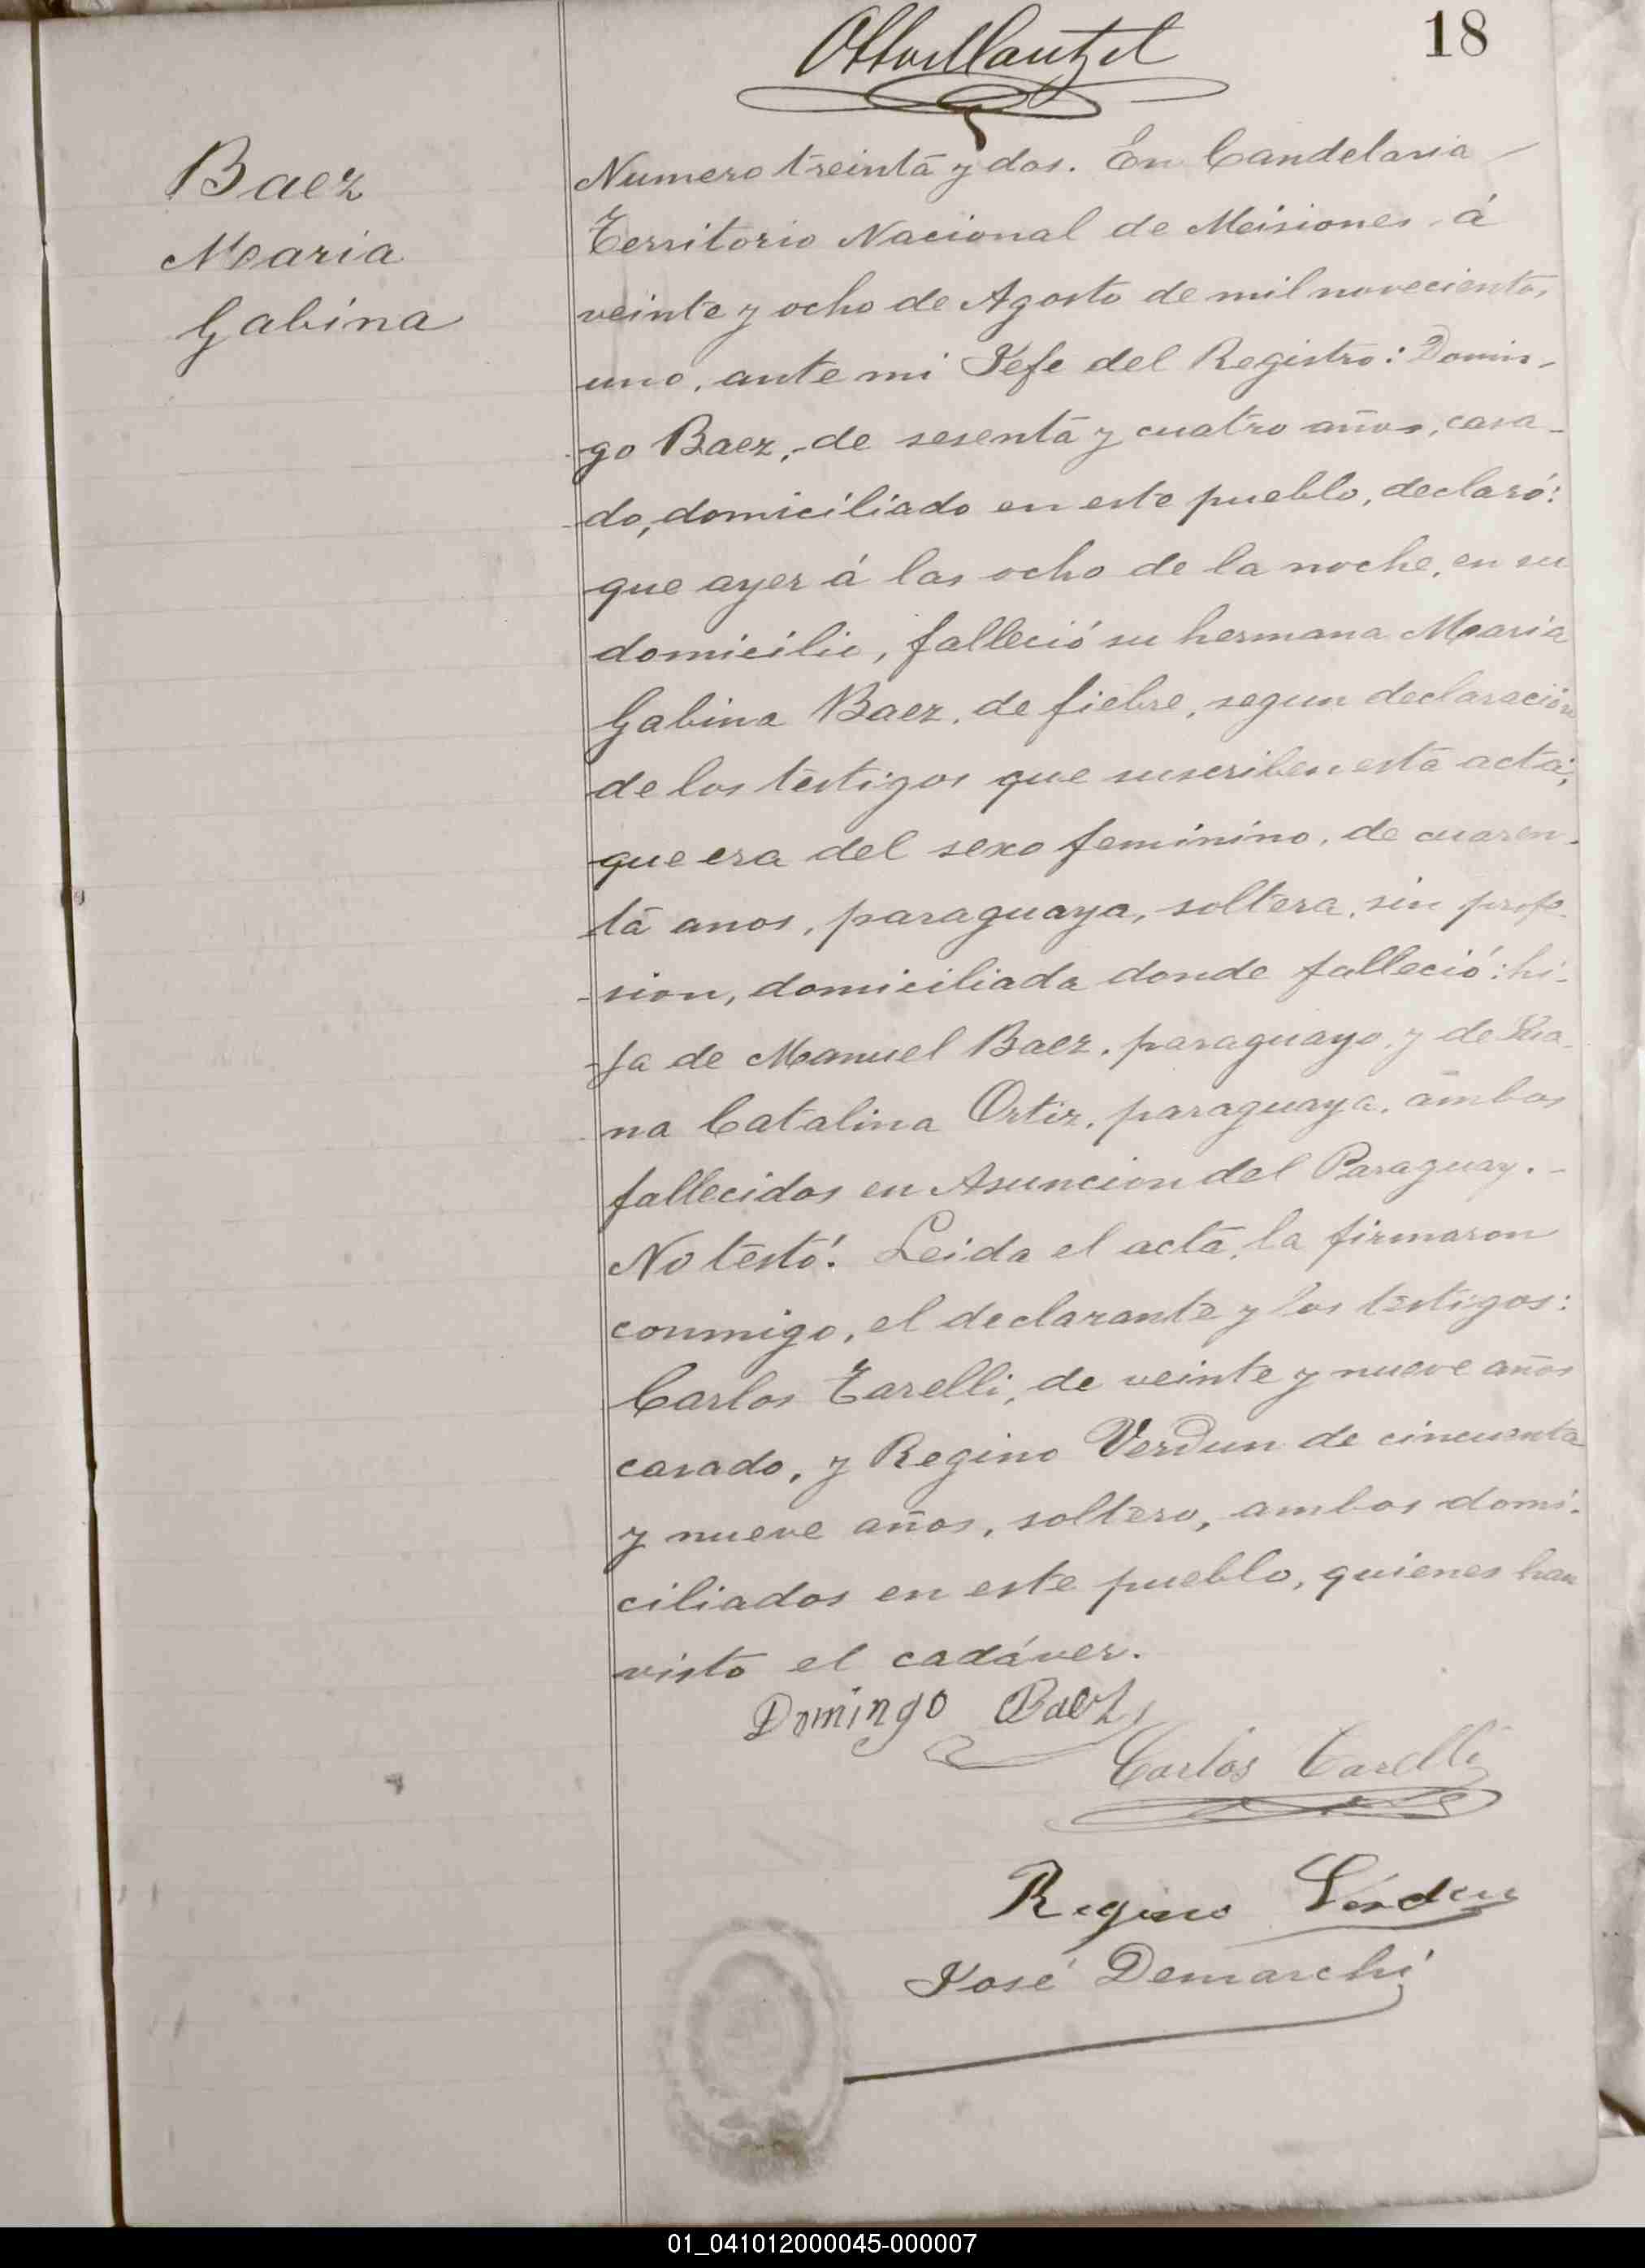 18
Baez
Maria
Gabina
Numero treinta y dos. En Candelaria
Territorio Nacional de Misiones, á
veinte y ocho de Agosto de mil novecientos
uno, ante mi Jefe del Registro: Domin-
go Baez, de sesenta y cuatro años, casa-
do, domiciliado en este pueblo, declaró:
que ayer á las ocho de la noche, en su
domicilio, falleció su hermana Maria
Gabina Baez, de fiebre, segun declaracion
de los testigos que suscriben esta acta;
que era del sexo feminino, de cuaren-
ta anos, paraguaya, soltera, sin profe-
sion, domiciliada donde falleció: hi-
ja de Manuel Baez, paraguayo, y de
na Catalina Ortiz, paraguaya, ambos
fallecidos en Asuncion del Paraguay.-
No testó. Leida el acta, la firmaron
conmigo, el declarante y los testigos:
Carlos Tarelli, de veinte y nueve años
casado, y Regino Verdun de cincuenta
y nueve años, soltero, ambos domi-
ciliados en este pueblo, quienes han
visto el cadáver.
Domingo Baez
Carlos Tarelli
Regino Verdun
José Demarchi
01_041012000045-000007